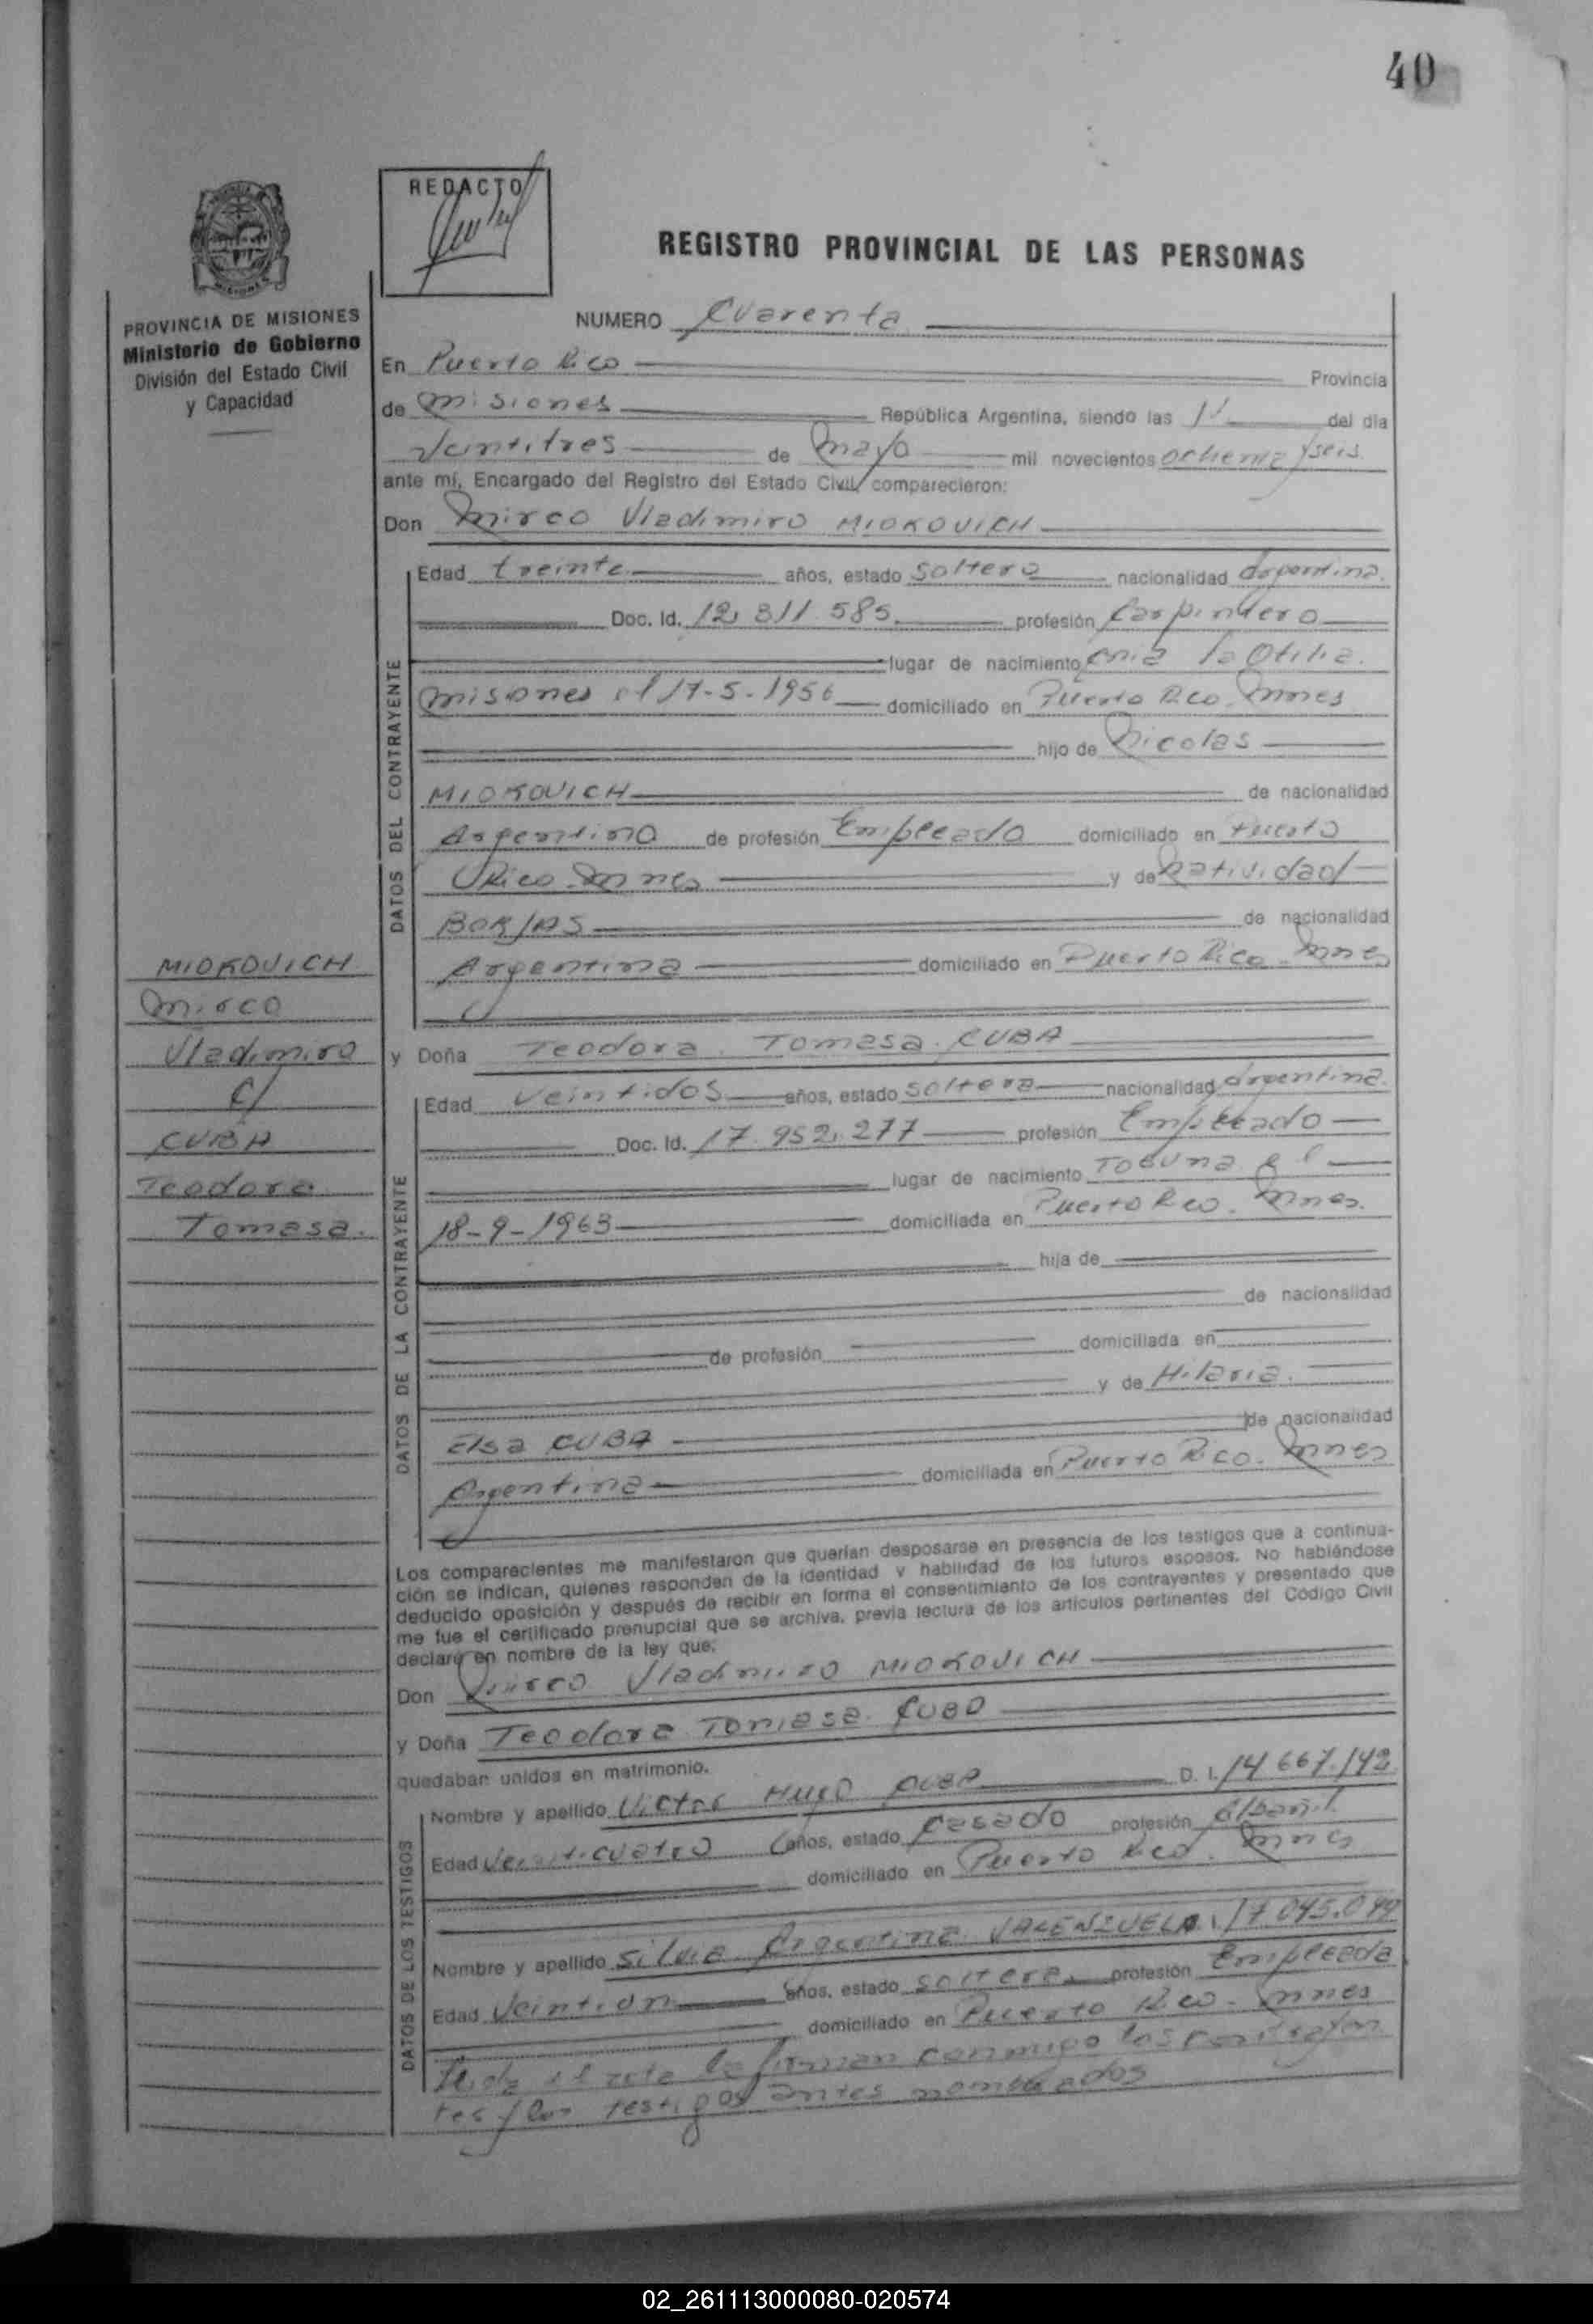 40
REDACTO
REGISTRO PROVINCIAL DE LAS PERSONAS
PROVINCIA DE MISIONES
Ministerio de Gobierno
División del Estado Civil
y Capacidad
NUMERO Cuarenta
En Puerto Rico Provincia
de Misiones República Argentina, siendo las 11 del día
Veintitres de Mayo mil novecientos ochenta y seis
ante mí, Encargado del Registro del Estado Civil comparecieron:
Don Mirco Vladimiro MIOKOVICH
DATOS DEL CONTRAYENTE
Edad treinta años, estado Soltero nacionalidad Argentina.
Doc. Id. 12.811.585. profesión Carpintero
lugar de nacimiento Cnia la Otilia.
Misiones el 17-5-1956 domiciliado en Puerto Rico. Mnes
hijo de Nicolas
MIOKOVICH de nacionalidad
Argentino de profesión Empleado domiciliado en Puerto
Rico. Mnes y de Natividad
BORJAS de nacionalidad
Argentina domiciliado en Puerto Rico. Mnes
MIOKOVICH
Mirco
Vladimiro
c/
CUBA
Teodora
Tomasa.
y Doña Teodora Tomasa CUBA
DATOS DE LA CONTRAYENTE
Edad Veintidos años, estado soltera nacionalidad Argentina.
Doc. Id. 17.952.277 profesión Empleado
lugar de nacimiento Tobuna el
18-9-1963 domiciliada en Puerto Rico. Mnes.
hija de
de nacionalidad
de profesión domiciliada en
y de Hilaria.
Elsa CUBA de nacionalidad
Argentina domiciliada en Puerto Rico. Mnes
Los comparecientes me manifestaron que querían desposarse en presencia de los testigos que a continua-
ción se indican, quienes responden de la identidad y habilidad de los futuros esposos. No habiéndose
deducido oposición y después de recibir en forma el consentimiento de los contrayentes y presentado que
me fue el certificado prenupcial que se archiva, previa lectura de los artículos pertinentes del Código Civil
declaré en nombre de la ley que:
Don Mirco Vladimiro MIOKOVICH
y Doña Teodora Tomasa CUBA
quedaban unidos en matrimonio.
DATOS DE LOS TESTIGOS
Nombre y apellido Victor Hugo CUBA D. I. 14.667.142
Edad Veinticuatro años, estado Casado profesión Albañil.
domiciliado en Puerto Rico. Mnes
Nombre y apellido Silvia Argentina VALENZUELA 17.045.044
Edad Veintiun años, estado soltera profesión Empleada
domiciliado en Puerto Rico. Mnes
Leida el acta la firman conmigo los contrayen
tes y los testigos antes nombrados
02_261113000080-020574